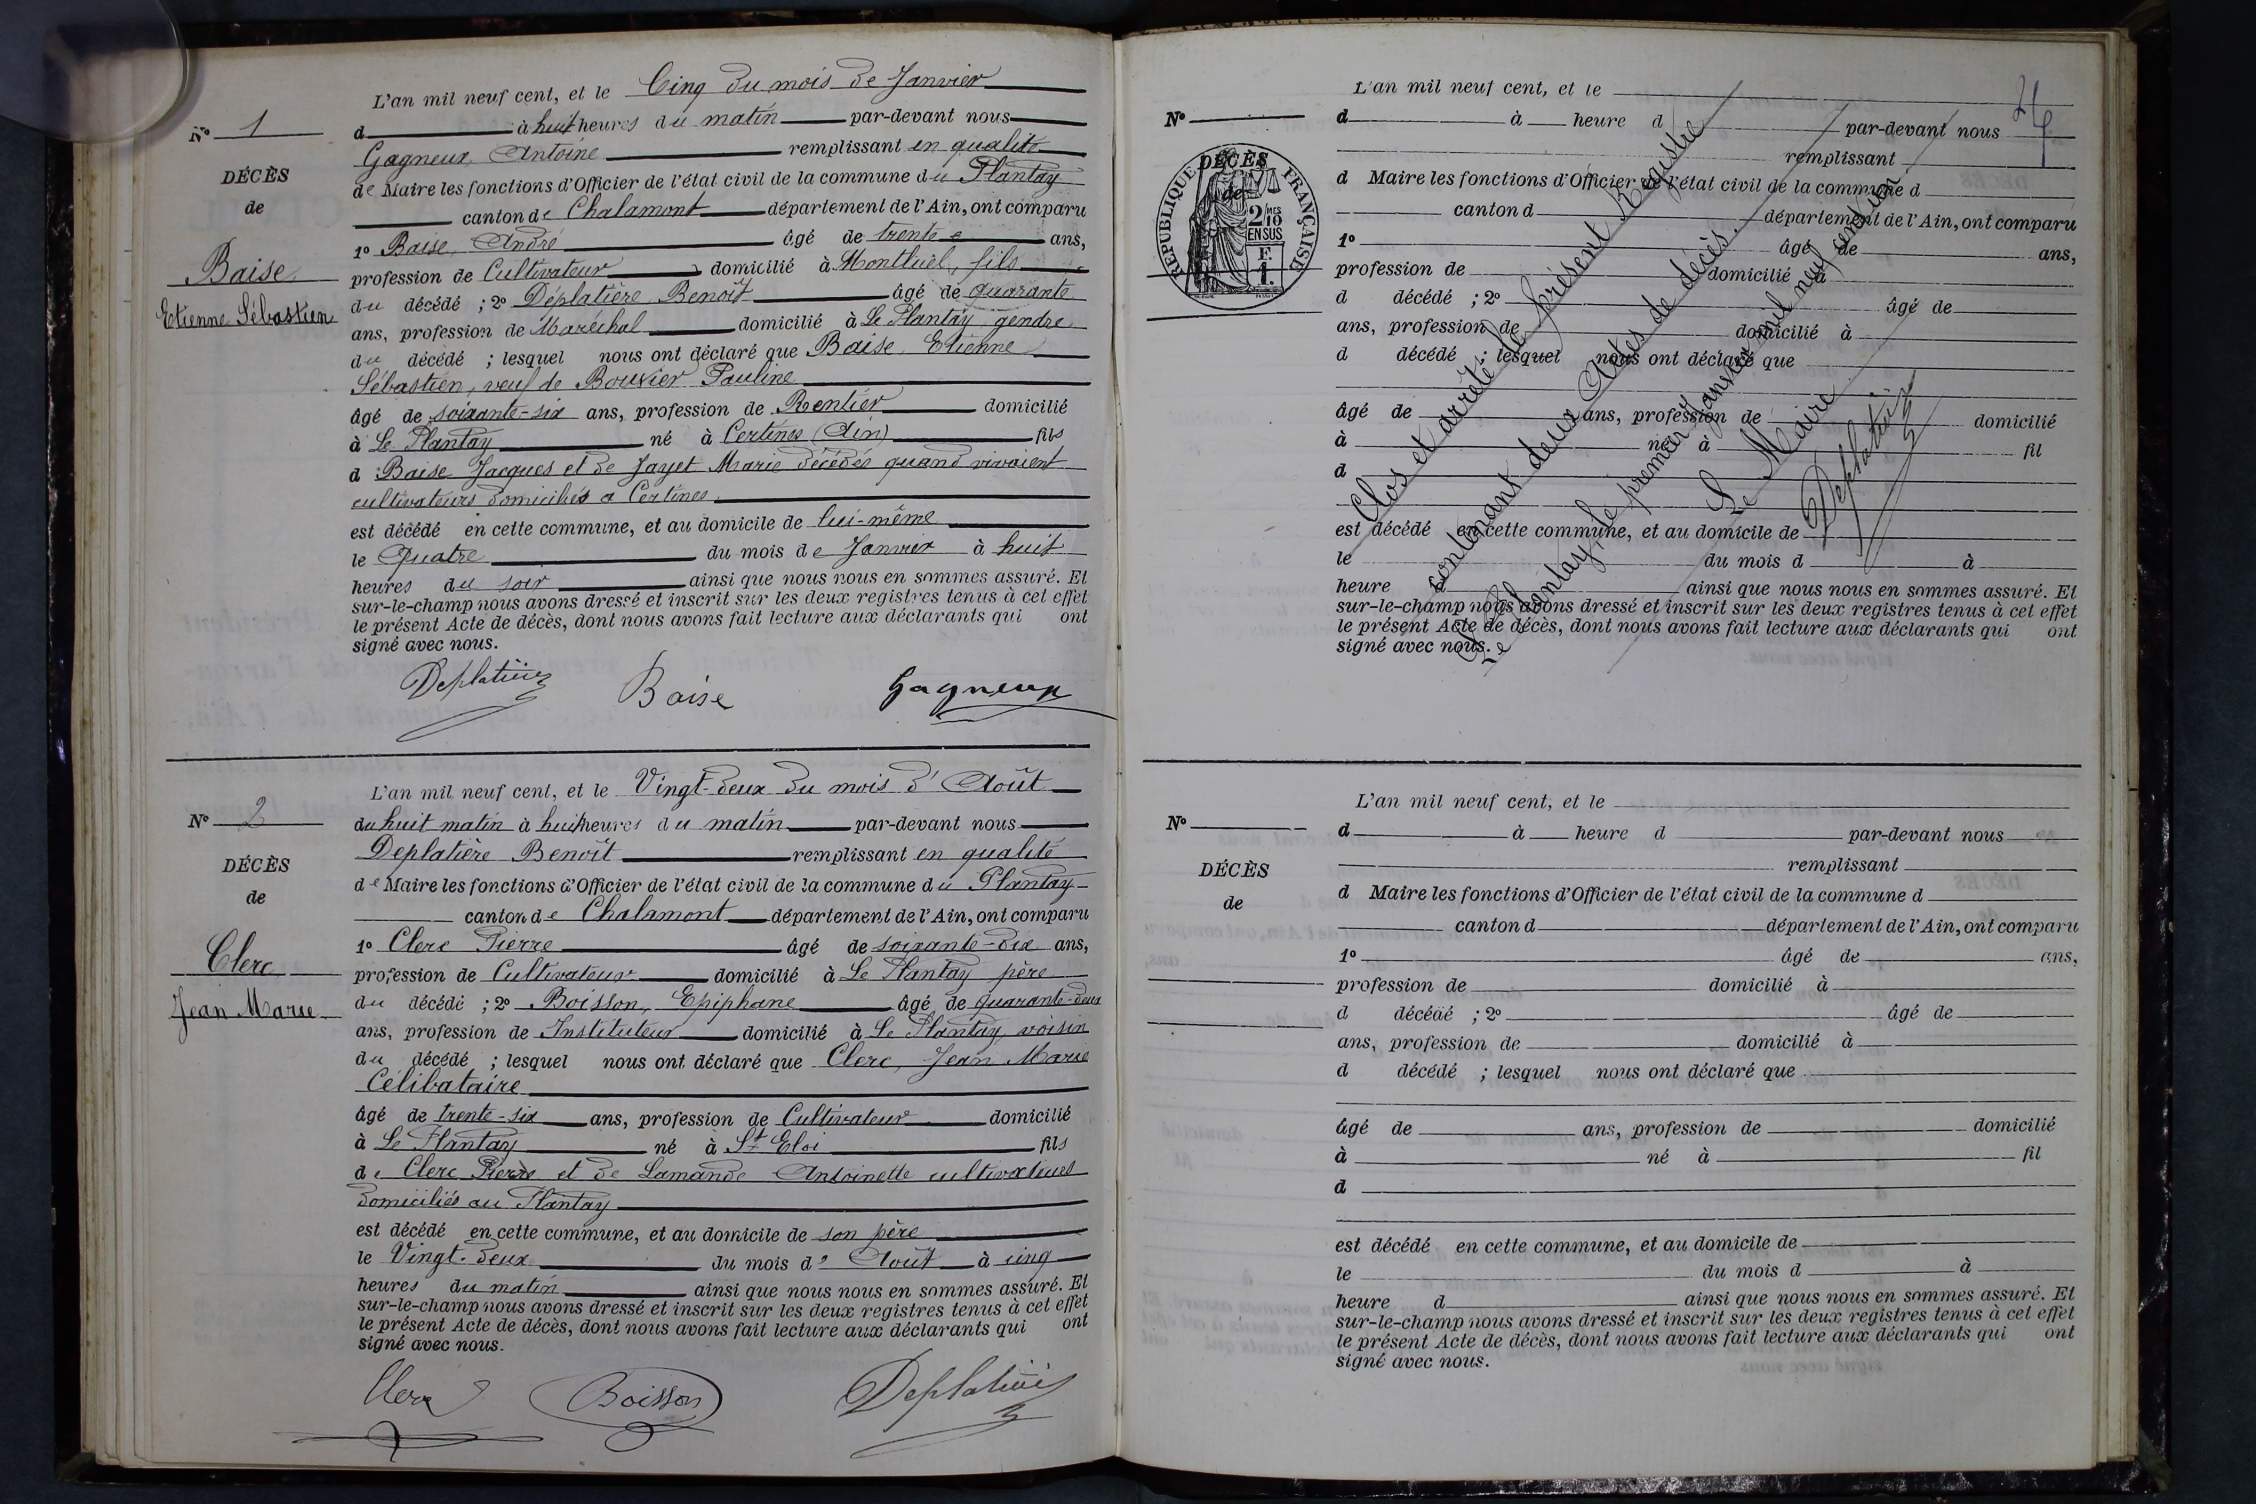 L'an mil neuf cent, et le Cinq du mois de Janvier
N° 1
d à huit heures du matin par-devant nous
Gagneux Antoine remplissant en qualité
DÉCÈS
de Maire les fonctions d'Officier de l'état civil de la commune du Plantay
de
canton de Chalamont département de l'Ain, ont comparu
1° Baise, André âgé de trente ans,
Baise
profession de Cultivateur domicilié à Montluel, fils
Etienne Sébastien
du décédé ; 2° Déplatière Benoît âgé de quarante
ans, profession de Maréchal domicilié à Le Plantay gendre
du décédé ; lesquel nous ont déclaré que Baise, Etienne
Sébastien, veuf de Bouvier Pauline
âgé de soixante-six ans, profession de Rentier domicilié
à Le Plantay né à Certines (Ain) fils
d Baise Jacques et de Jayet Marie décédés quand vivaient
cultivateurs domiciliés à Certines
est décédé en cette commune, et au domicile de lui-même
le Quatre du mois de Janvier à huit
heures du soir ainsi que nous nous en sommes assuré. Et
sur-le-champ nous avons dressé et inscrit sur les deux registres tenus à cet effet
le présent Acte de décès, dont nous avons fait lecture aux déclarants qui ont
signé avec nous.
Deplatière Baise Gagneux
L'an mil neuf cent, et le Vingt-deux du mois d'Août
N° 2
du huit matin à huit heures du matin par-devant nous
Deplatière Benoît remplissant en qualité
DÉCÈS
de Maire les fonctions d'Officier de l'état civil de la commune du Plantay
de
canton de Chalamont département de l'Ain, ont comparu
1° Clerc Pierre âgé de soixante-dix ans,
Clerc
profession de Cultivateur domicilié à Le Plantay père
Jean Marie
du décédé ; 2° Boisson, Epiphane âgé de quarante-deux
ans, profession de Instituteur domicilié à Le Plantay, voisin
du décédé ; lesquel nous ont déclaré que Clerc, Jean Marie
Célibataire
âgé de trente-six ans, profession de Cultivateur domicilié
à Le Plantay né à St Eloi fils
de Clerc Pierre et de Lamande Antoinette cultivateurs
domiciliés au Plantay
est décédé en cette commune, et au domicile de son père
le Vingt-deux du mois d' Août à cinq
heures du matin ainsi que nous nous en sommes assuré. Et
sur-le-champ nous avons dressé et inscrit sur les deux registres tenus à cet effet
le présent Acte de décès, dont nous avons fait lecture aux déclarants qui ont
signé avec nous.
Clerc Boisson Deplatière
L'an mil neuf cent, et le
N°
d à heure d par-devant nous
remplissant
DÉCÈS
de
RÉPUBLIQUE FRANÇAISE
2/10 MES
EN SUS
F.
1.
d Maire les fonctions d'Officier de l'état civil de la commune d
canton d département de l'Ain, ont comparu
1° âgé de ans,
profession de domicilié à
d décédé ; 2° âgé de
ans, profession de domicilié à
d décédé ; lesquel nous ont déclaré que
âgé de ans, profession de domicilié
à né à fil
d
est décédé en cette commune, et au domicile de
le du mois d à
heure d ainsi que nous nous en sommes assuré. Et
sur-le-champ nous avons dressé et inscrit sur les deux registres tenus à cet effet
le présent Acte de décès, dont nous avons fait lecture aux déclarants qui ont
signé avec nous.
Clos et arrêté le présent Registre
contenant deux Actes de décès.
Le Plantay, le premier Janvier mil neuf cent un
Le Maire
Deplatière
L'an mil neuf cent, et le
N°
d à heure d par-devant nous
remplissant
DÉCÈS
de
d Maire les fonctions d'Officier de l'état civil de la commune d
canton d département de l'Ain, ont comparu
1° âgé de ans,
profession de domicilié à
d décédé ; 2° âgé de
ans, profession de domicilié à
d décédé ; lesquel nous ont déclaré que
âgé de ans, profession de domicilié
à né à fil
d
est décédé en cette commune, et au domicile de
le du mois d à
heure d ainsi que nous nous en sommes assuré. Et
sur-le-champ nous avons dressé et inscrit sur les deux registres tenus à cet effet
le présent Acte de décès, dont nous avons fait lecture aux déclarants qui ont
signé avec nous.